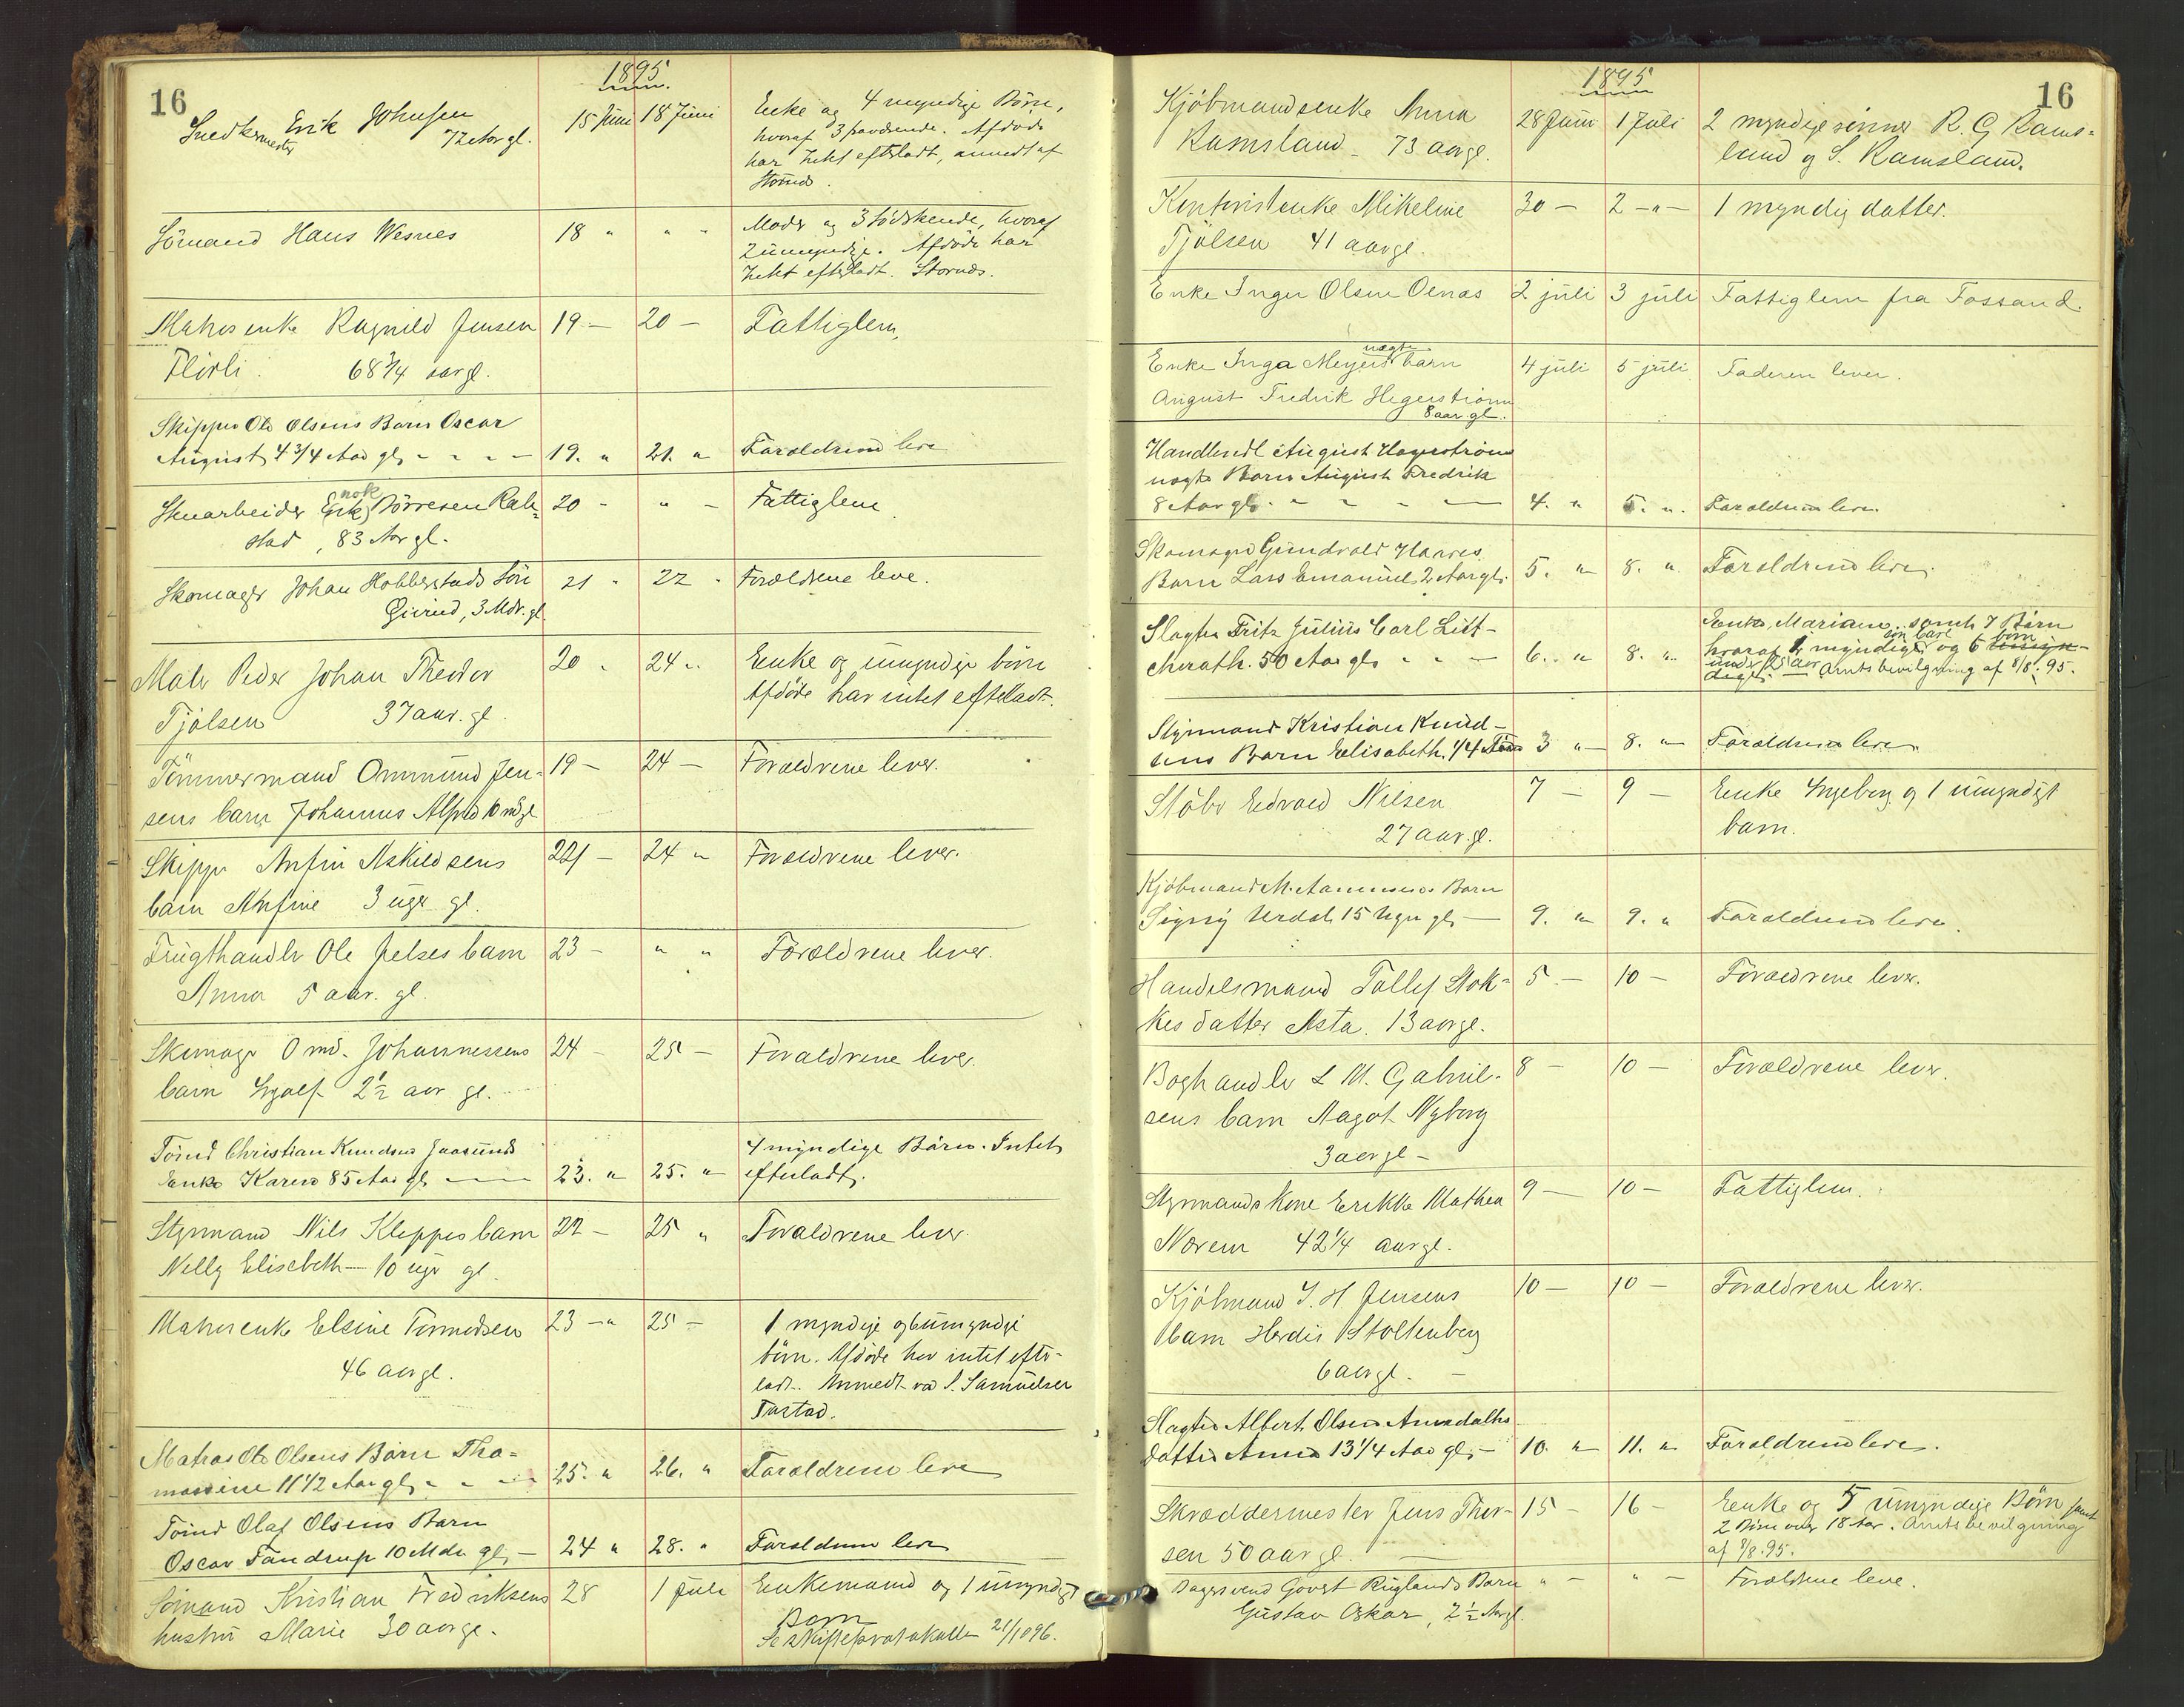 16
1895
Snedkermester Erik Johnsen
72 Aar gl.
15 Juni 18 Juni
Enke og 4 myndige Børn,
hvoraf 3 fraværende. Afdøde
har Intet efterladt, anmeldt af
Sømand Hans Wesnes
18 " " "
Moder og 3 Sødskende, hvoraf
2 umyndige. Afdøde har
Intet efterladt.
Matrosenke Ragnild Jensen
Flørli. 68 3/4 aar gl.
19 — 20 —
Fattiglem,
Skipper Ole Olsens Barn Oscar
August 4 3/4 Aar gl. - - - -
19. " 21. "
Forældrene leve
Stenarbeider Enk Børresen Rak-
nok
stad, 83 Aar gl.
20 - " -
Fattiglem
Skomager Johan Hobberstads Søn
Eivind, 3 Mdr. gl.
21 " 22 "
Forældrene leve.
Maler Peder Johan Theodor
Tjølsen 37 aar. gl.
20 " 24 "
Enke og umyndige børn
Afdøde har intet efterladt.
Tømmermand Ommund Jen-
sens barn Johannes Alfred 10 md gl
19 — 24 —
Forældrene lever.
Skipper Anfin Askildsens
barn Anfine 3 uger gl.
221 — 24 "
Forældrene lever.
Frugthandler Ole Jelses barn
Anna 5 aar. gl.
23 — " "
Forældrene lever.
Skomager Omd. Johannessens
barn Ingolf 2 1/2 aar gl.
24 — 25 —
Forældrene lever.
Tøind Christian Knudsens Jaasunds
Enke Karen 85 Aar gl. ——
23. " 25. "
4 myndige Børn. Intet
efterladt.
Styrmand Nils Kleppes barn
Nelly Elisabeth — 10 uger gl.
22 — 25 "
Forældrene lever.
Matrosenke Elsine Tormodsen
46 aar gl.
23 — " 25 —
1 myndige og 6 umyndige
børn. Afdøde har intet efter-
ladt. Anmeldt ved S. Samuelsen
Tastad.
Matros Ole Olsens Barn Tho-
massine 11 1/2 Aar gl. - - -
25. " 26. "
Forældrene leve
Tøind Olaf Olsens Barn
Oscar Tandrup 10 Mdr gl. —
24 " 28. "
Forældrene leve
Sømand Kristian Fredriksens
hustru Marie 30 aar gl.
28 1 Juli
Enkemand og 1 umyndigt
Barn
Se Skifteprotokollen 21/10 96.
16
1895
Kjøbmandsenke Anna
Ramsland — 73 aar gl.
28 Juni 1 Juli
2 myndige sønner R. G Rams-
land og S. Ramsland.
Kontoristenke Mikeline
Tjølsen 41 aar gl.
30 — 2 — " —
1 myndig datter.
Enke Inger Olsen Oenas
2 juli 3 juli
Fattiglem fra Fossand.
nægte
Enke Inga Meyers barn
August Fredrik Hegerstrøm
8 aar gl.
4 juli 5 juli
Faderen lever.
Handlende August Hagerstrøms
nægte Barn August Fredrik
8 Aar gl. - - - —
4. " 5. "
Forældrene leve.
Skomager Gundvald Haaves
Barn Lars Emanuel 2 Aar gl.
5. " 8. "
Forældrene leve
Slagter Fritz Julius Carl List-
cherath. 50 Aar gl. - - —
6. " 8. "
Enke, Mariane. samt 7 Børn
hvoraf 1 myndig og 6 umyn-
søn Carl børn
under 18 aar
dige. — Amtsbevilgning af 8/8. 95.
Styrmand Kristian Knud-
sens Barn Elisabeth. 1/4 Aar
3 " — 8. " —
Forældrene leve
Støber Edvard Nilsen
27 aar. gl.
7 — 9 —
Enke Ingeborg og 1 umyndigt
barn.
Kjøbmand M. Aanensens Barn
Signy Urdal 15 Uger gl. —
9. " 9. "
Forældrene leve.
Handelsmand Tollef Stok-
kes datter Asta. 13 aar gl.
5 — 10 —
Forældrene lever.
Boghandler L M. Gabriel-
sens barn Aagot Nyborg
3 aar gl —
8 — 10 —
Forældrene lever.
Styrmandskone Erikke Mathea
Norem 42 1/4 aar gl.
9 — 10 —
Fattiglem.
Kjøbmand I. H Jensens
barn Herdis Stoltenberg
6 aar gl. —
10 — 10 —
Forældrene lever.
Slagter Albert Olsen Aarrdalhs
datter Anna 13 1/4 Aar gl. —
10. " 11. "
Forældrene leve.
Skræddermester Jens Thor-
sen 50 aar gl.
15 — 16 —
Enke og 5 umyndige Børn samt
2 Børn over 18 Aar. Amtsbevilgning
af 8/8. 95.
Bagersvend Govert Ruglands Barn
Gustav Oskar, 2 1/2 Aar gl.
" — " —
Forældrene leve.